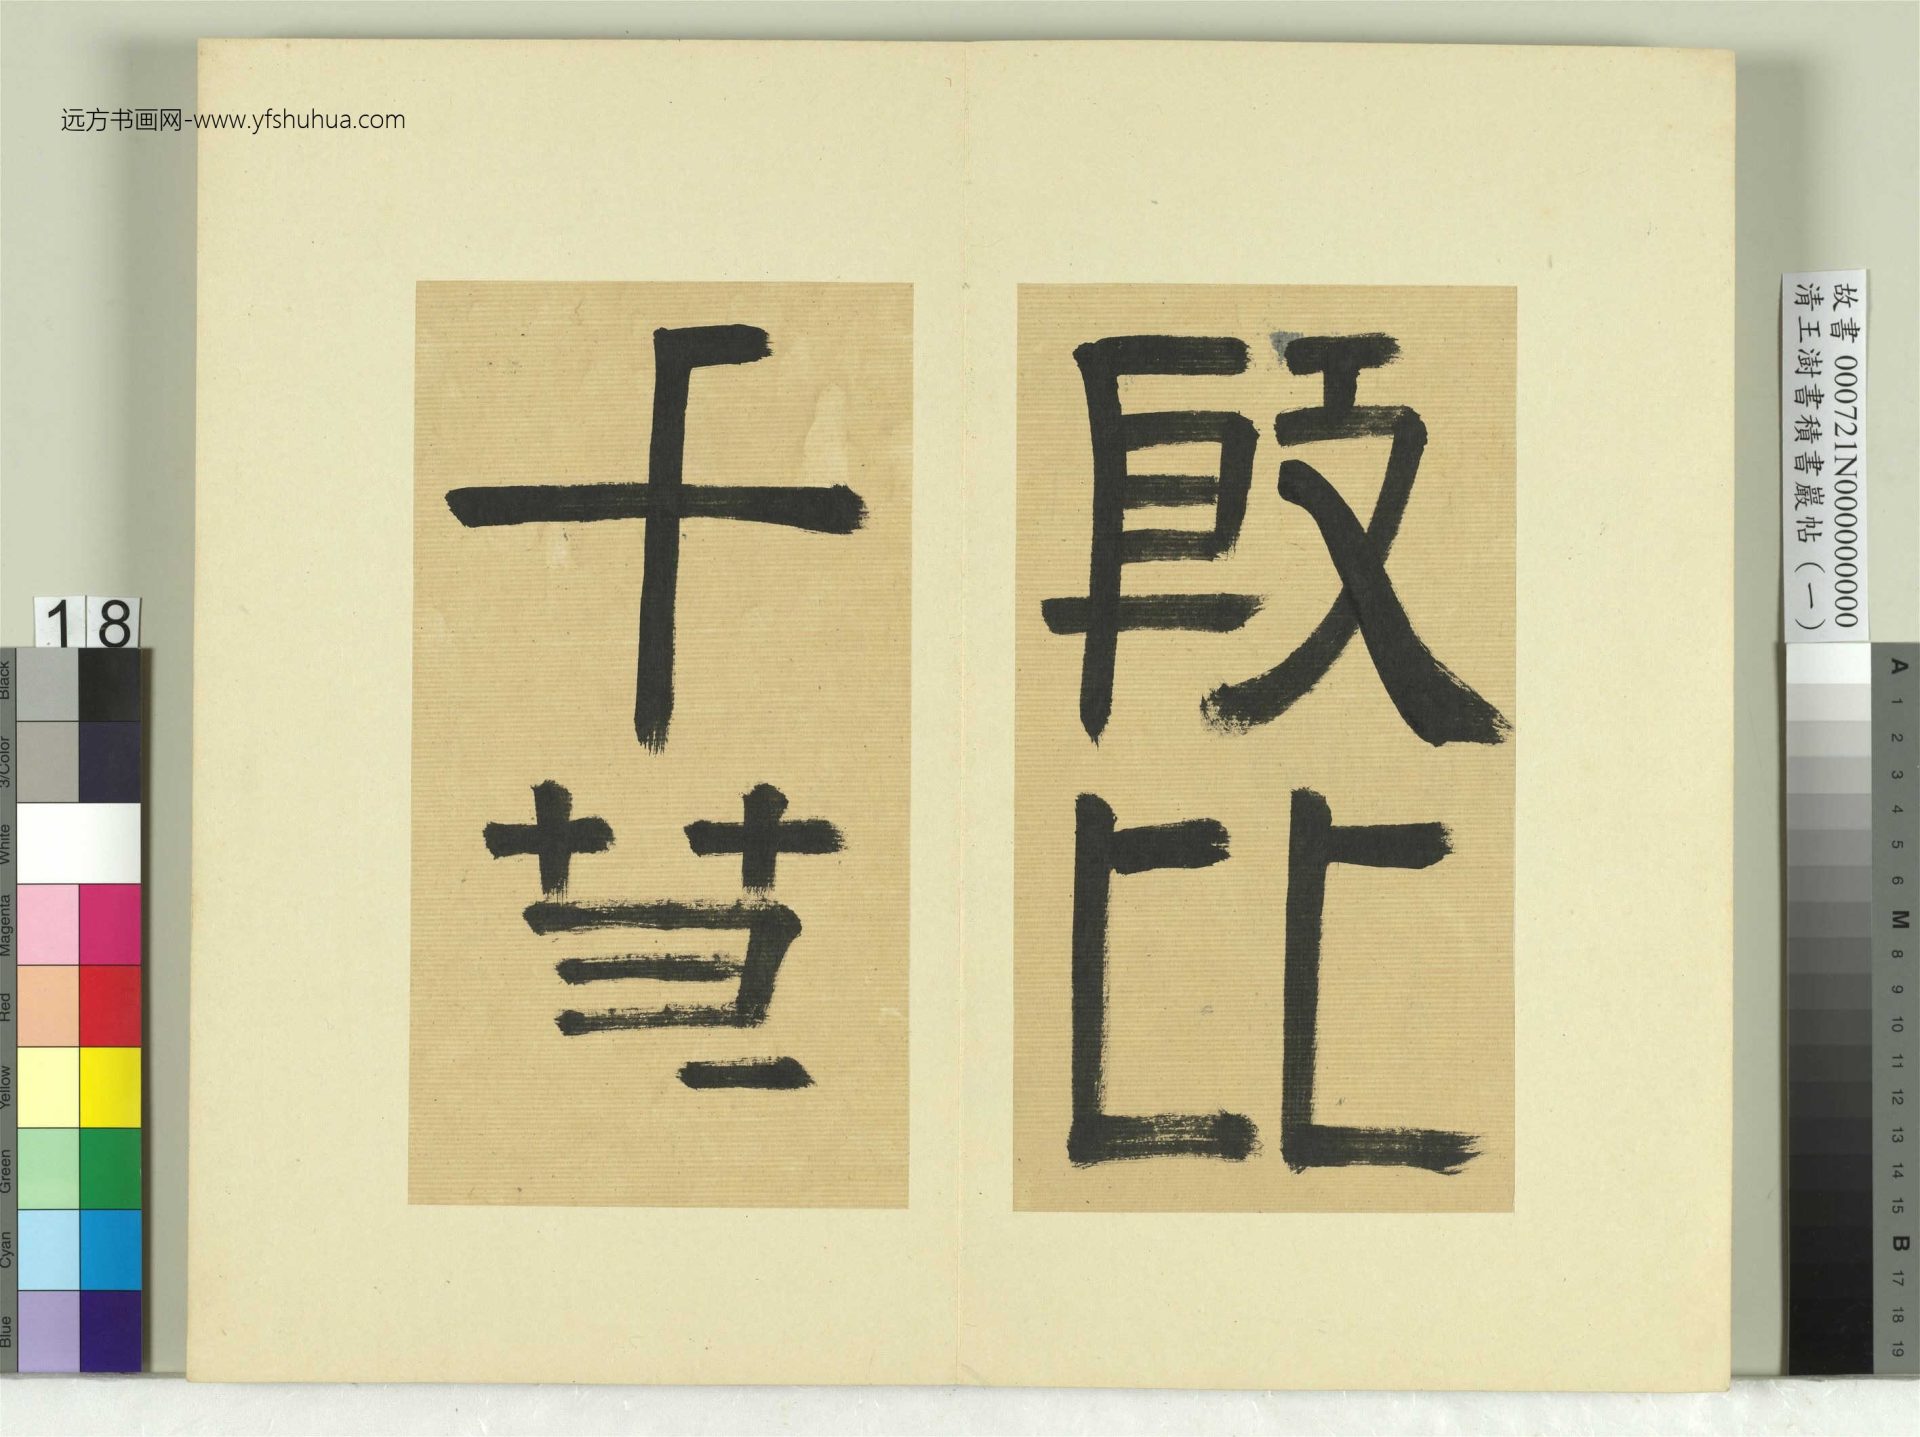 远方书画网-www.yfshuhua.com
殷比
干墓
故書 000721N000000000
清王澍書積書巖帖（一）
18
Black
3/Color
White
Magenta
Red
Yellow
Green
Cyan
Blue
A 1 2 3 4 5 6 M 8 9 10 11 12 13 14 15 B 17 18 19